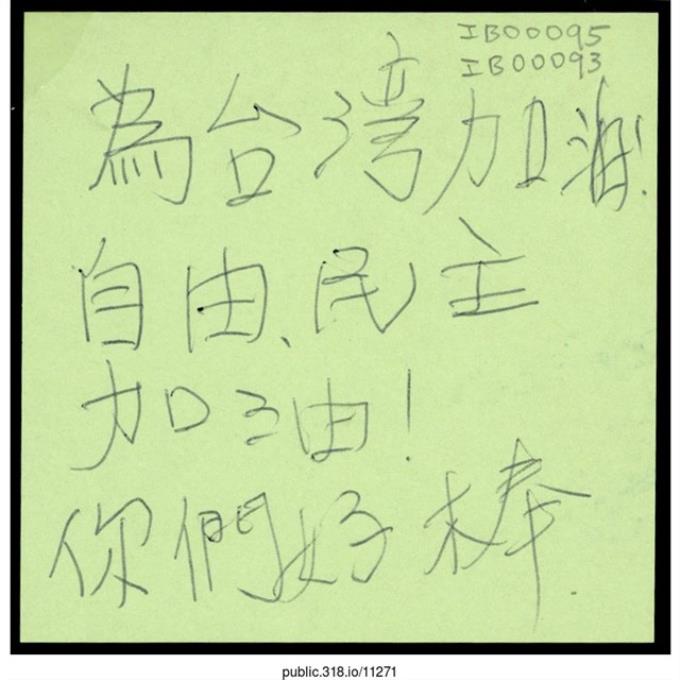 IB00095
IB00093
為台湾加油!
自由、民主
加油!
你們好棒.
public.318.io/11271